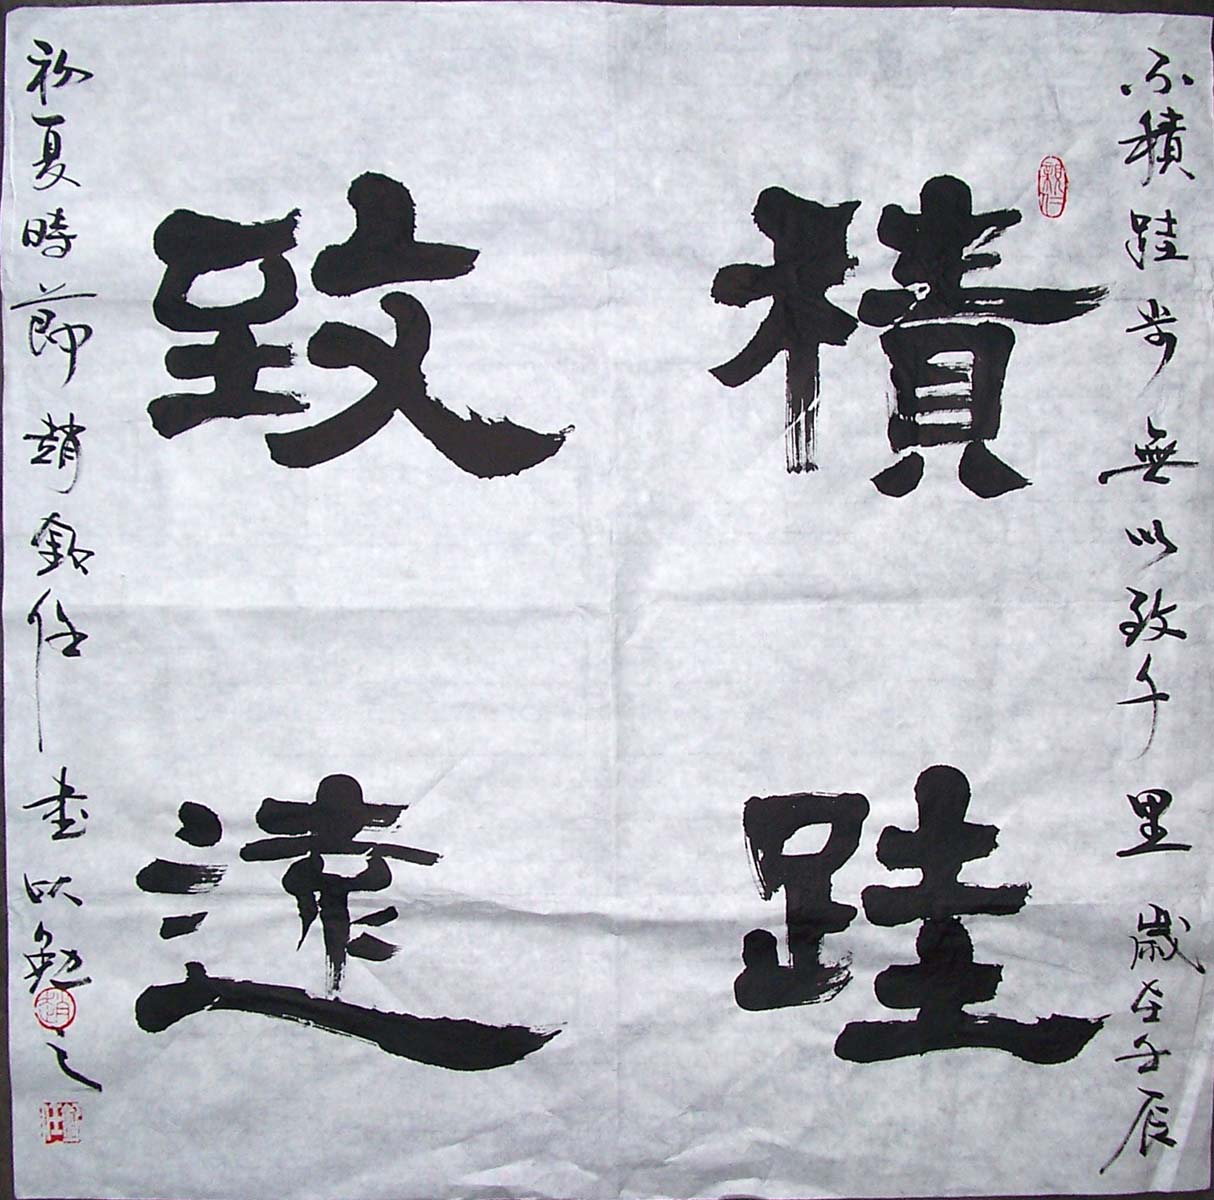 不積跬步無以致千里歲在壬辰
親仁
積跬
致遠
初夏時節趙書以勉之
趙